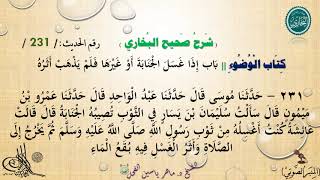 شرح صحيح البخاري
رقم الحديث: / 231 /
كِتَاب الْوُضُوءِ || بَاب إِذَا غَسَلَ الْجَنَابَةَ أَوْ غَيْرَهَا فَلَمْ يَذْهَبْ أَثَرُهُ
٢٣١ - حَدَّثَنَا مُوسَى قَالَ حَدَّثَنَا عَبْدُ الْوَاحِدِ قَالَ حَدَّثَنَا عَمْرُو بْنُ
مَيْمُونٍ قَالَ سَأَلْتُ سُلَيْمَانَ بْنَ يَسَارٍ فِي الثَّوْبِ تُصِيبُهُ الْجَنَابَةُ قَالَ قَالَتْ
عَائِشَةُ كُنْتُ أَغْسِلُهُ مِنْ ثَوْبِ رَسُولِ اللَّهِ صَلَّى اللَّهُ عَلَيْهِ وَسَلَّمَ ثُمَّ يَخْرُجُ إِلَى
الصَّلَاةِ وَأَثَرُ الْغَسْلِ فِيهِ بُقَعُ الْمَاءِ
ماهر ياسين الفحل